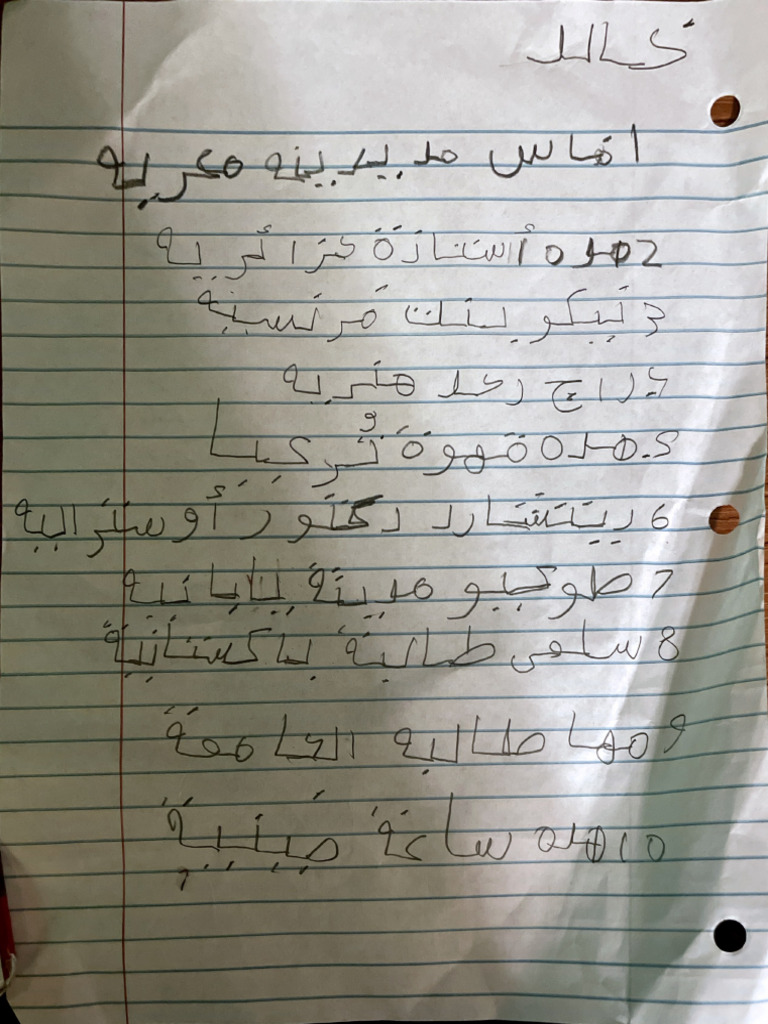 خالد
1 فاس مدينه مغربيه
2 هده أستازة جزائرية
3 نيكو بنت فرنسية
4 راج رجل هنديه
5. هده قهوة تُركيا
6 ريتتشارد دكتور أوسترالية
7 طوكيو مدينة يابانية
8 سلمى طالبة باكستانية
9 مها طالبه الجامعة
10 هده ساعة صينية